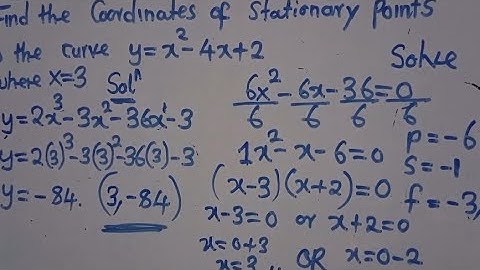 Find the Coordinates of Stationary points
the curve y=x²-4x+2
where x=3 Solⁿ
y=2x³-3x²-36x-3
y=2(3)³-3(3)²-36(3)-3
y=-84. (3,-84)
Solve
6x²-6x-36=0
6 6 6 6
1x²-x-6=0
(x-3)(x+2)=0
x-3=0 or x+2=0
x=0+3 OR x=0-2
x=3
p=-6
s=-1
f=-3,